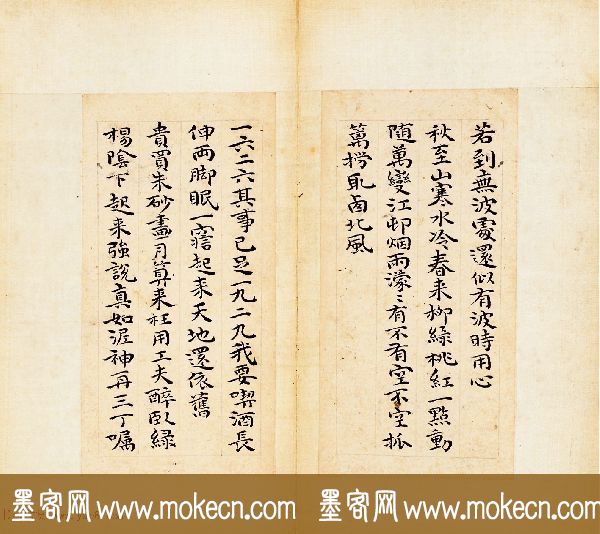 若到無波處還似有波時用心
秋至山寒水冷春来柳緑桃紅一點動
随萬變江邨烟雨濛〻有不有空不空笊
篱撈取西北風
一六二六其事已足一九二九我要喫酒長
伸両脚眠一寤起来天地還依舊
貴買朱砂畫月算来枉用工夫醉卧緑
楊陰下起来強説真如泥神再三丁嘱
墨客网 www.mokecn.com
墨客网 www.mokecn.com